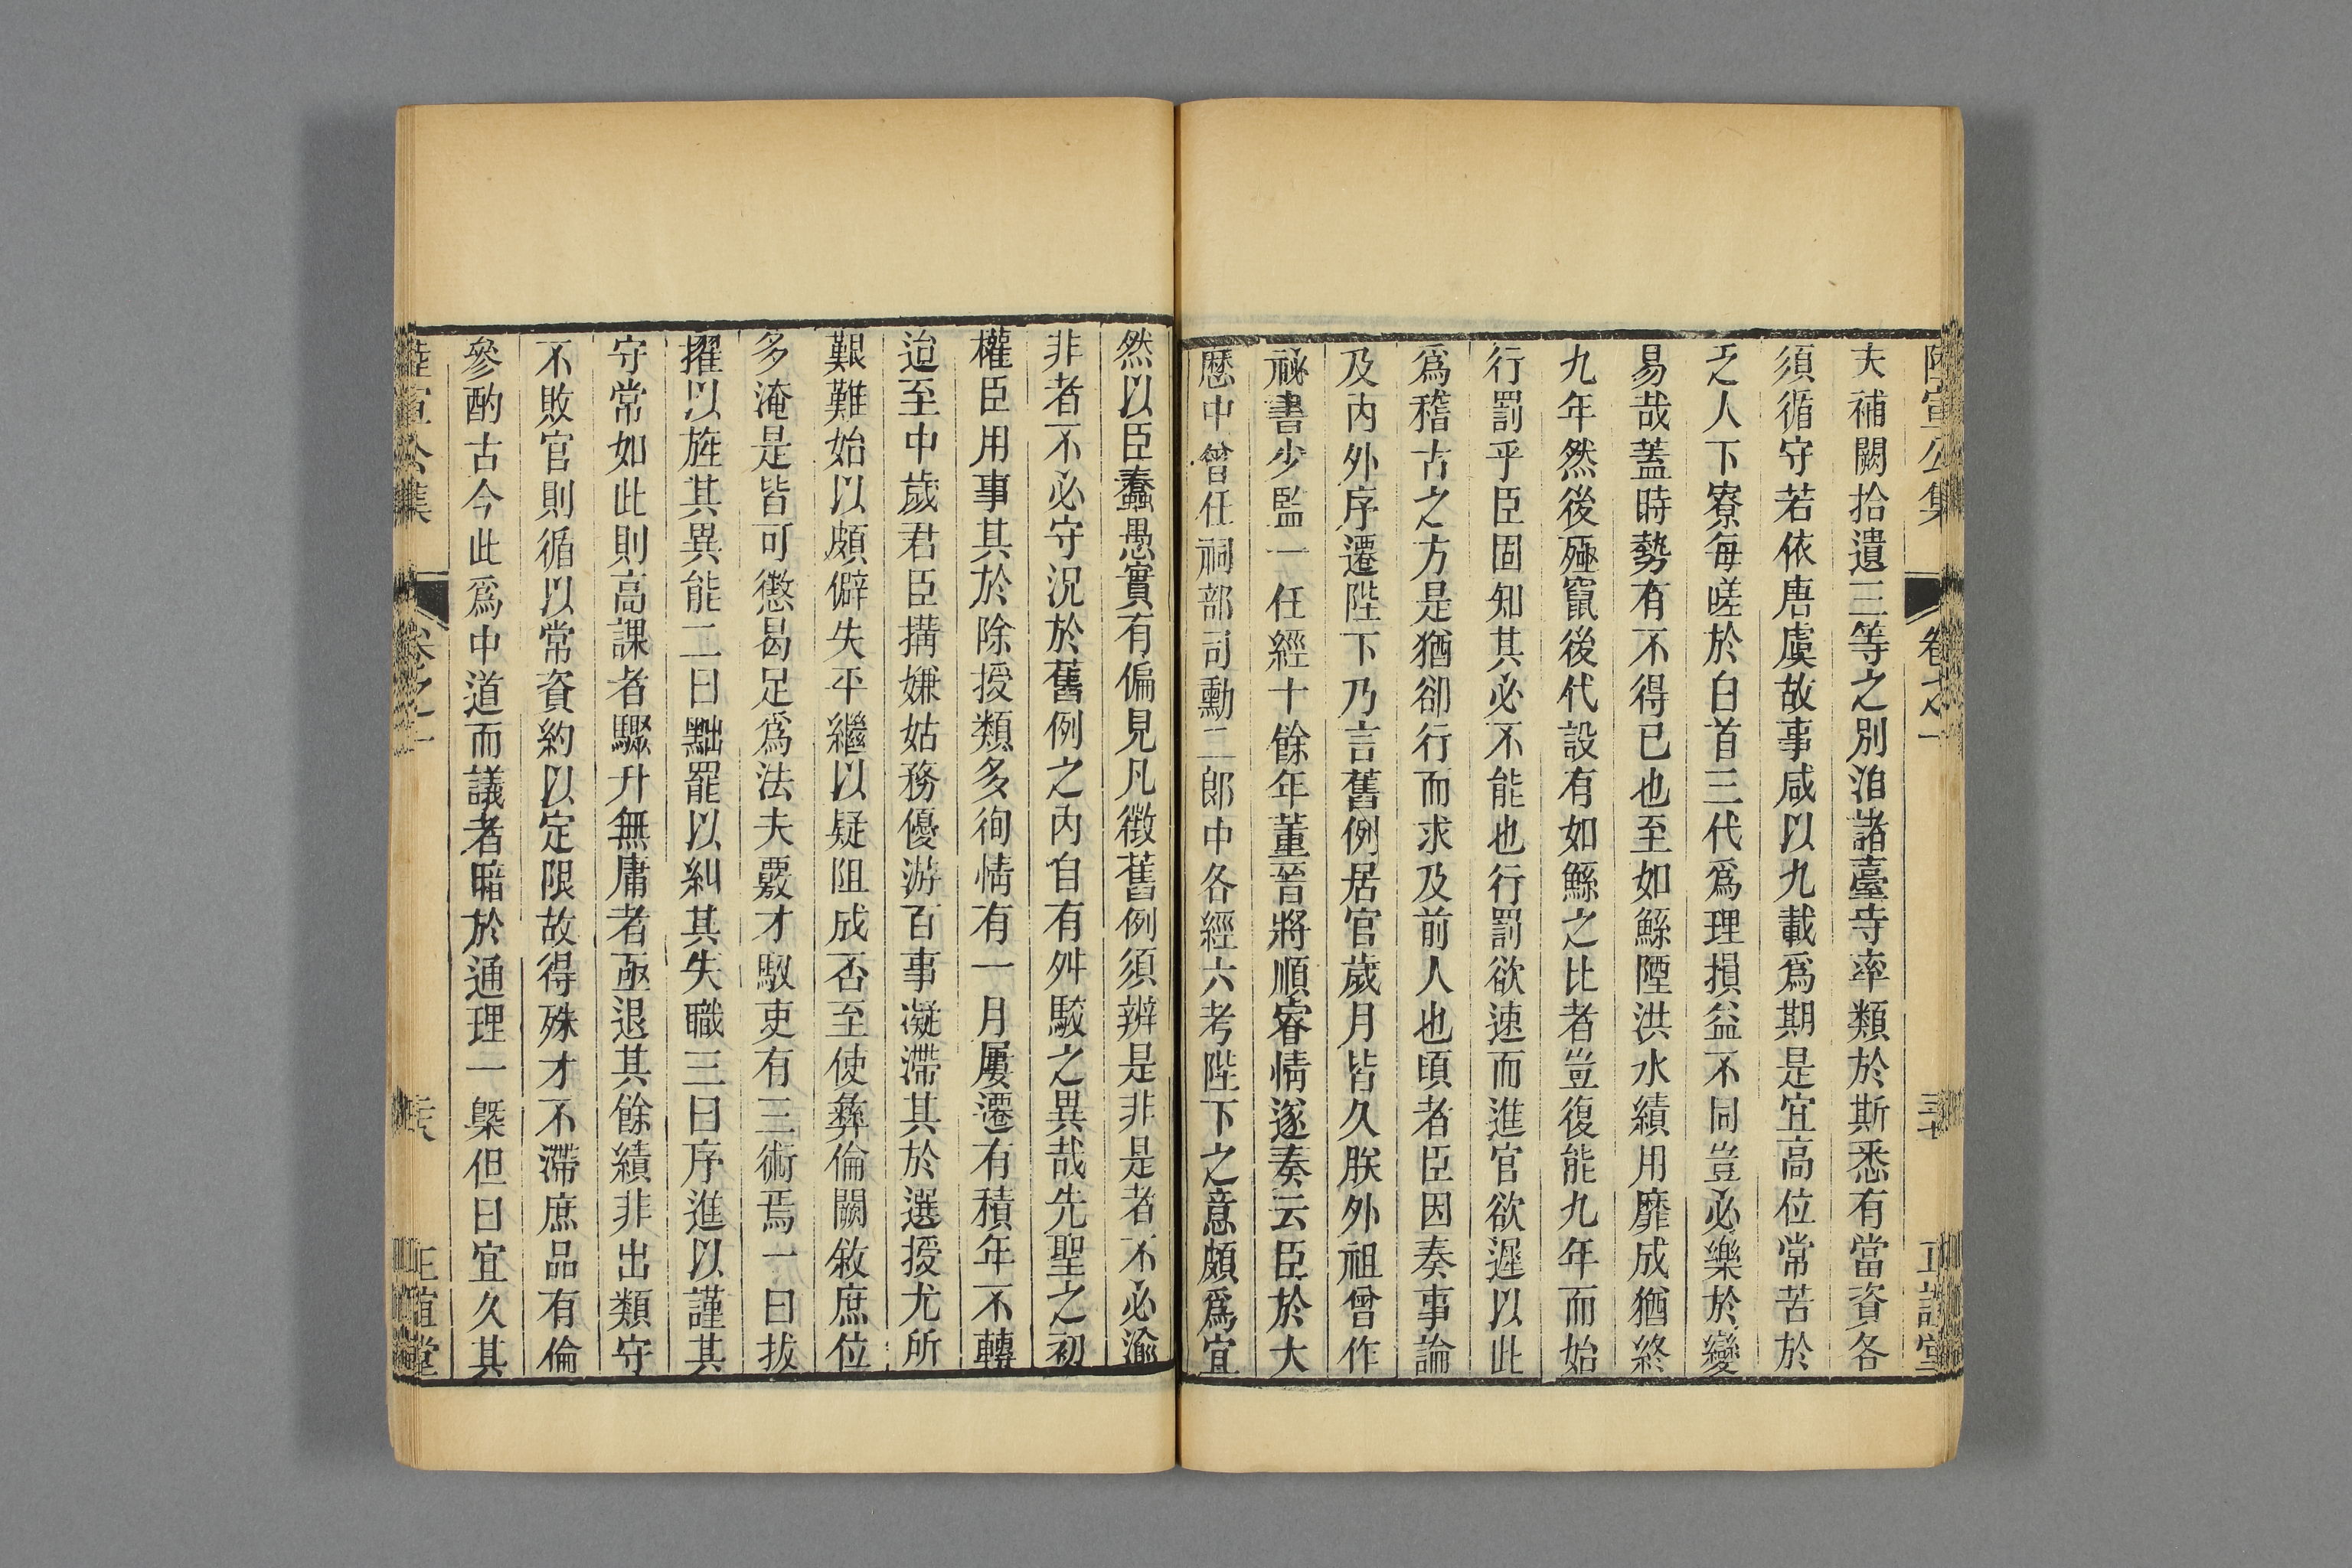 陸宣公集 卷之十一 正誼堂
夫補闕拾遺三等之別洎諸臺寺率類於斯悉有當資各
須循守若依唐虞故事咸以九載爲期是宜高位常苦於
乏人下寮每嗟於白首三代爲理損益不同豈必樂於變
易哉蓋時勢有不得已也至如鯀陻洪水績用靡成猶終
九年然後殛竄後代設有如鯀之比者豈復能九年而始
行罰乎臣固知其必不能也行罰欲速而進官欲遲以此
爲稽古之方是猶卻行而求及前人也頃者臣因奏事論
及內外序遷陛下乃言舊例居官歲月皆久朕外祖曾作
祕書少監一任經十餘年董晉將順睿情遂奏云臣於大
歷中曾任祠部司勳二郎中各經六考陛下之意頗爲宜
然以臣蠢愚實有偏見凡徵舊例須辨是非是者不必渝
非者不必守況於舊例之內自有舛駮之異哉先聖之初
權臣用事其於除授類多徇情有一月屢遷有積年不轉
迨至中歲君臣搆嫌姑務優游百事凝滯其於選授尤所
艱難始以頗僻失平繼以疑阻成否至使彝倫闕敘庶位
多淹是皆可懲曷足爲法夫覈才馭吏有三術焉一曰拔
擢以旌其異能二曰黜罷以糾其失職三曰序進以謹其
守常如此則高課者驟升無庸者亟退其餘績非出類守
不敗官則循以常資約以定限故得殊才不滯庶品有倫
參酌古今此爲中道而議者暗於通理一槩但曰宜久其
陸宣公集 卷之十一 正誼堂